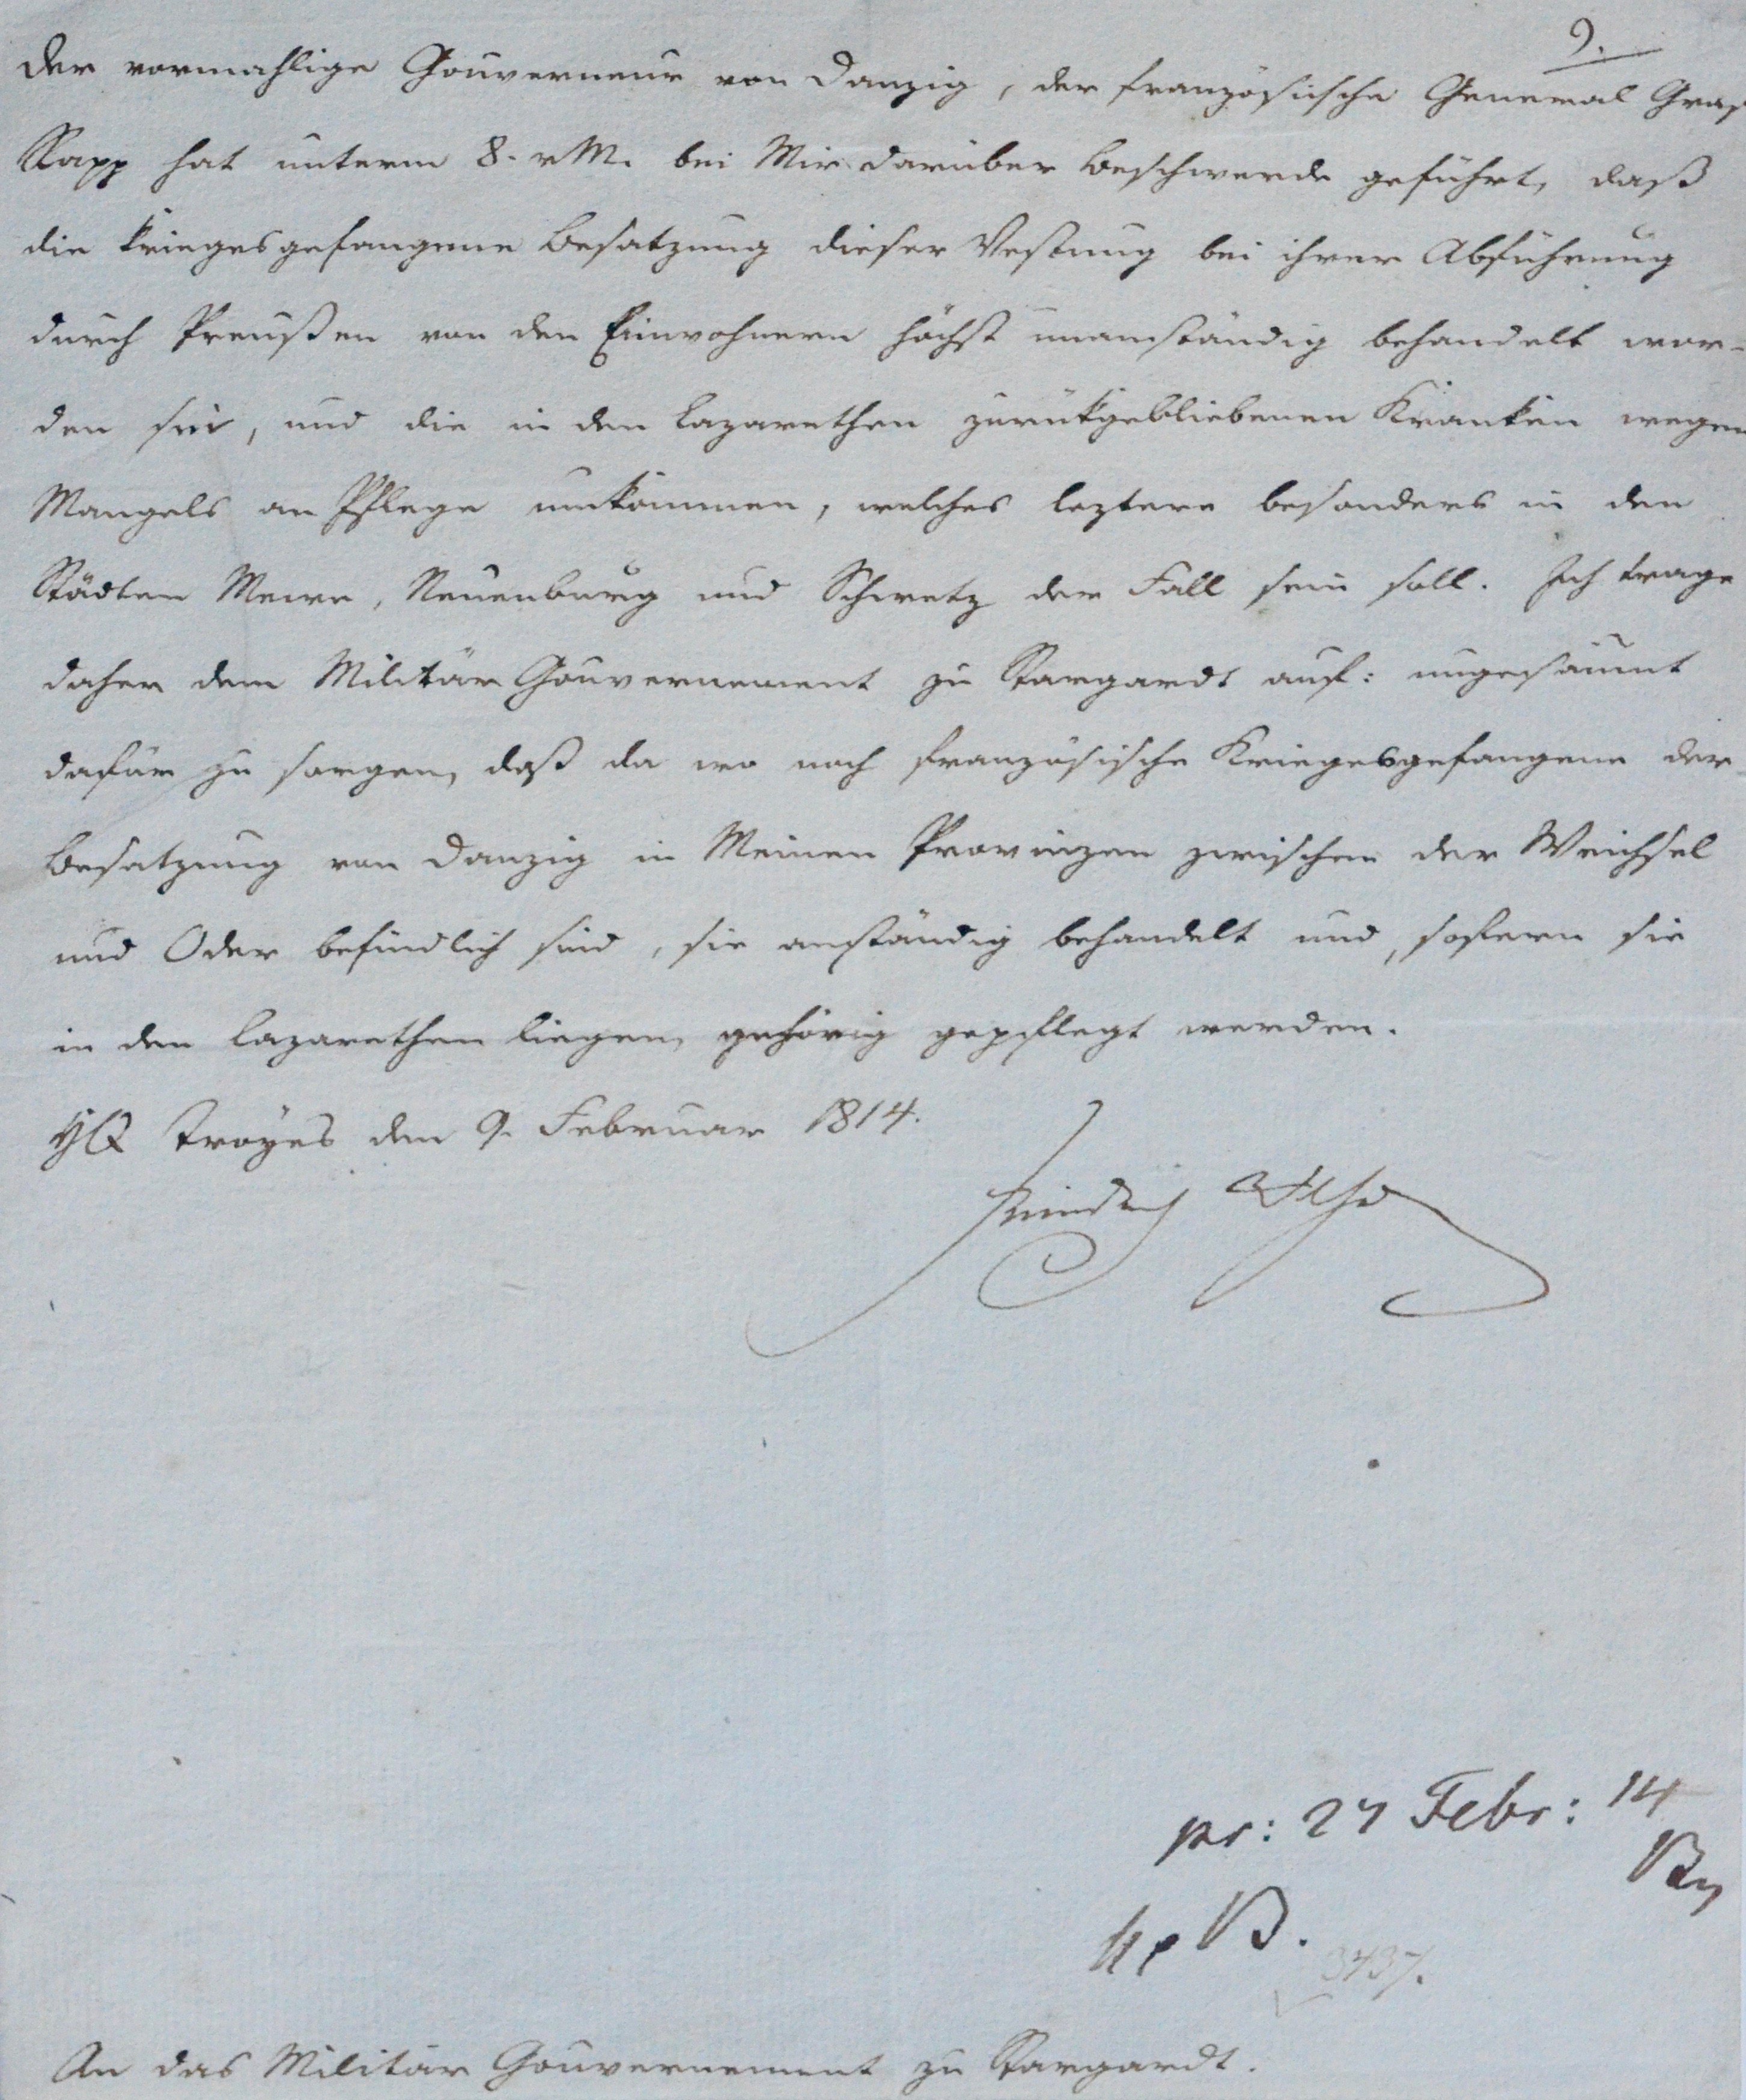 9.
Der vormahlige Gouverneur von Danzig, der französische General Graf
Rapp hat unterm 8. v M. bei Mir darüber Beschwerde geführt, daß
die kriegesgefangene Besatzung dieser Vestung bei ihrer Abführung
durch Preußen von den Einwohnern höchst unanständig behandelt wor-
den sei, und die in den Lazarethen zurükgebliebenen Kranken wegen
Mangels an Pflege umkommen, welches leztere besonders in den
Städten Mewe, Neuenburg und Schwetz der Fall sein soll. Ich trage
daher dem Militär Gouvernement zu Stargardt auf: ungesäumt
dafür zu sorgen, daß da wo noch französische Kriegesgefangene der
Besatzung von Danzig in Meinen Provinzen zwischen der Weichsel
und Oder befindlich sind, sie anständig behandelt und, sofern sie
in den Lazarethen liegen, gehörig gepflegt werden.
HQ Troyes den 9. Februar 1814.
Friedrich Wilhelm
pr: 27 Febr: 14
B.
3437.
An das Militär Gouvernement zu Stargardt.